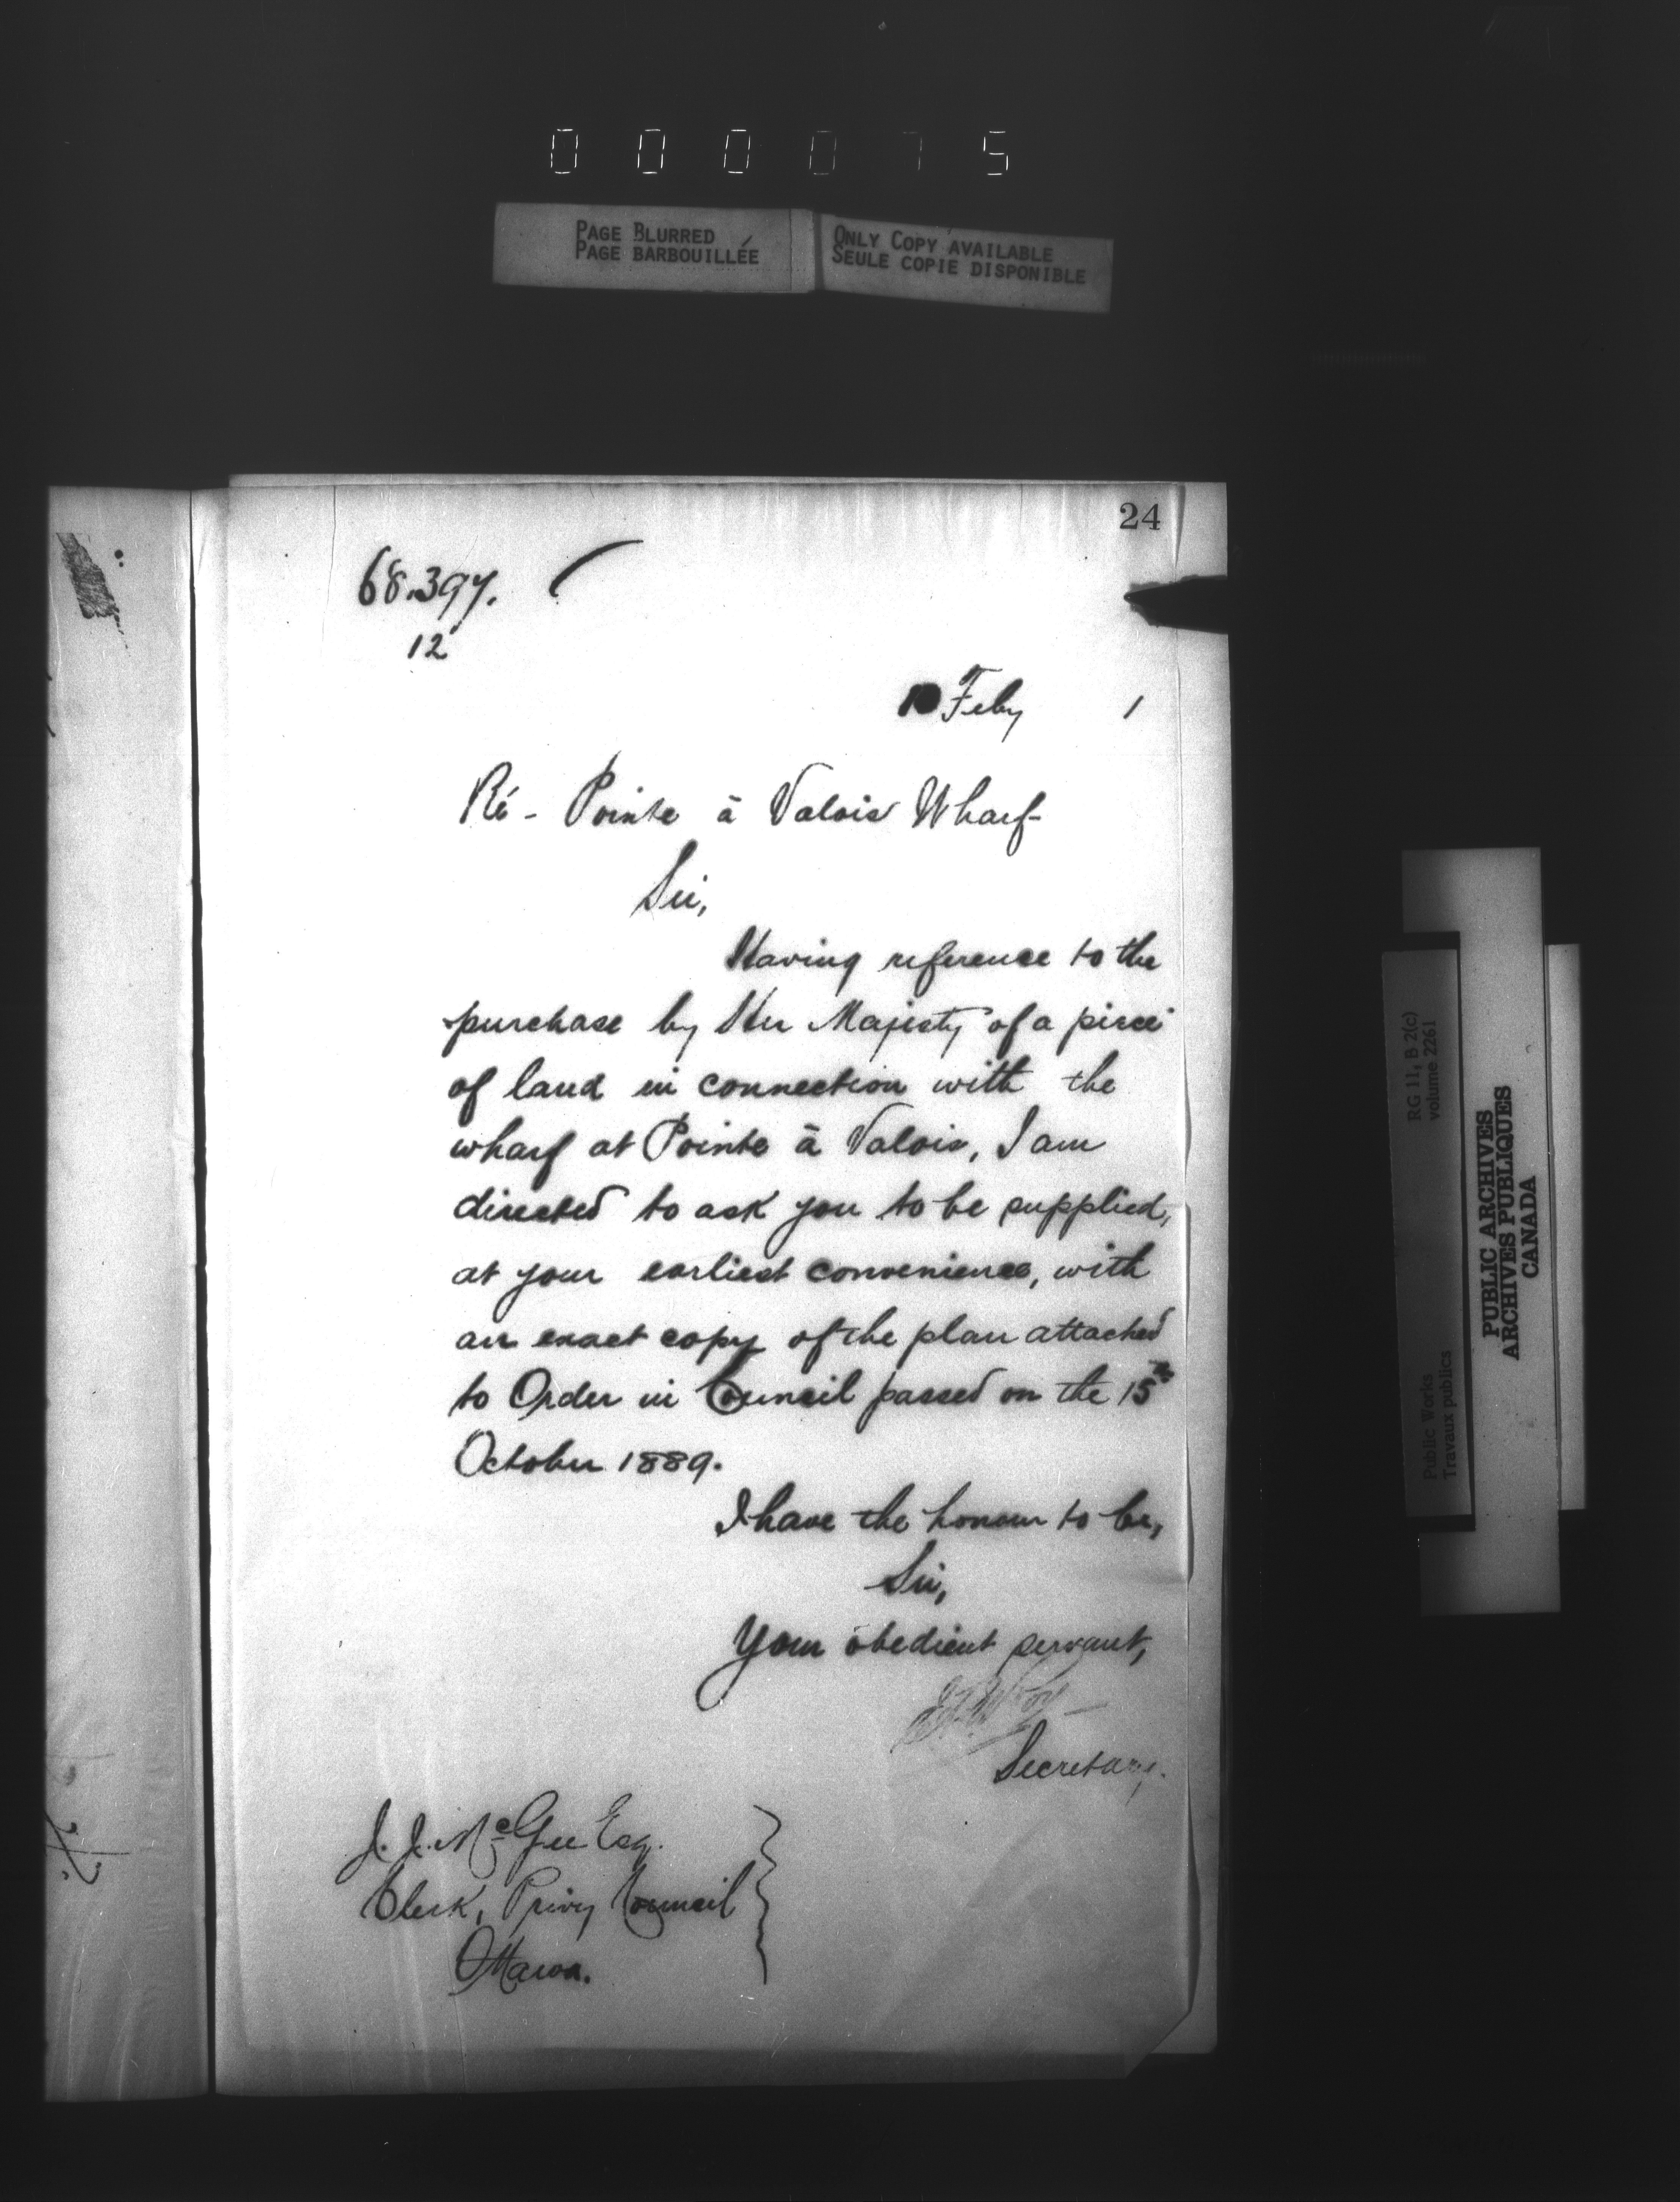 000075
PAGE BLURRED
PAGE BARBOUILLÉE
ONLY COPY AVAILABLE
SEULE COPIE DISPONIBLE
24
68.397.
12
10 Feby 1
Ré - Pointe à Valois Wharf -
Sir,
Having reference to the
purchase by Her Majesty of a piece
of land in connection with the
wharf at Pointe à Valois, I am
directed to ask you to be supplied,
at your earliest convenience, with
an exact copy of the plan attached
to Order in Council passed on the 15th
October 1889.
I have the honour to be,
Sir,
Your obedient servant,
Secretary.
J. J. McGee Esq.
Clerk, Privy Council
Ottawa.
RG 11, B 2(c)
volume 2261
Public Works
Travaux publics
PUBLIC ARCHIVES
ARCHIVES PUBLIQUES
CANADA